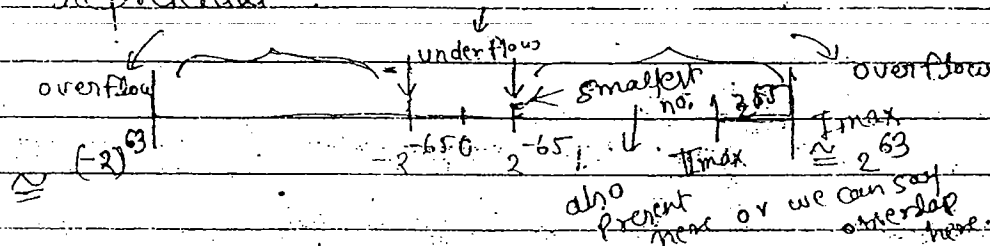 underflow
overflow smallest overflow
no. 2^55
(-2)^63 -2^-65 0 2^-65 IImax Imax
≅ ≅ 2^63
also
present
here or we can say
overlap
here.